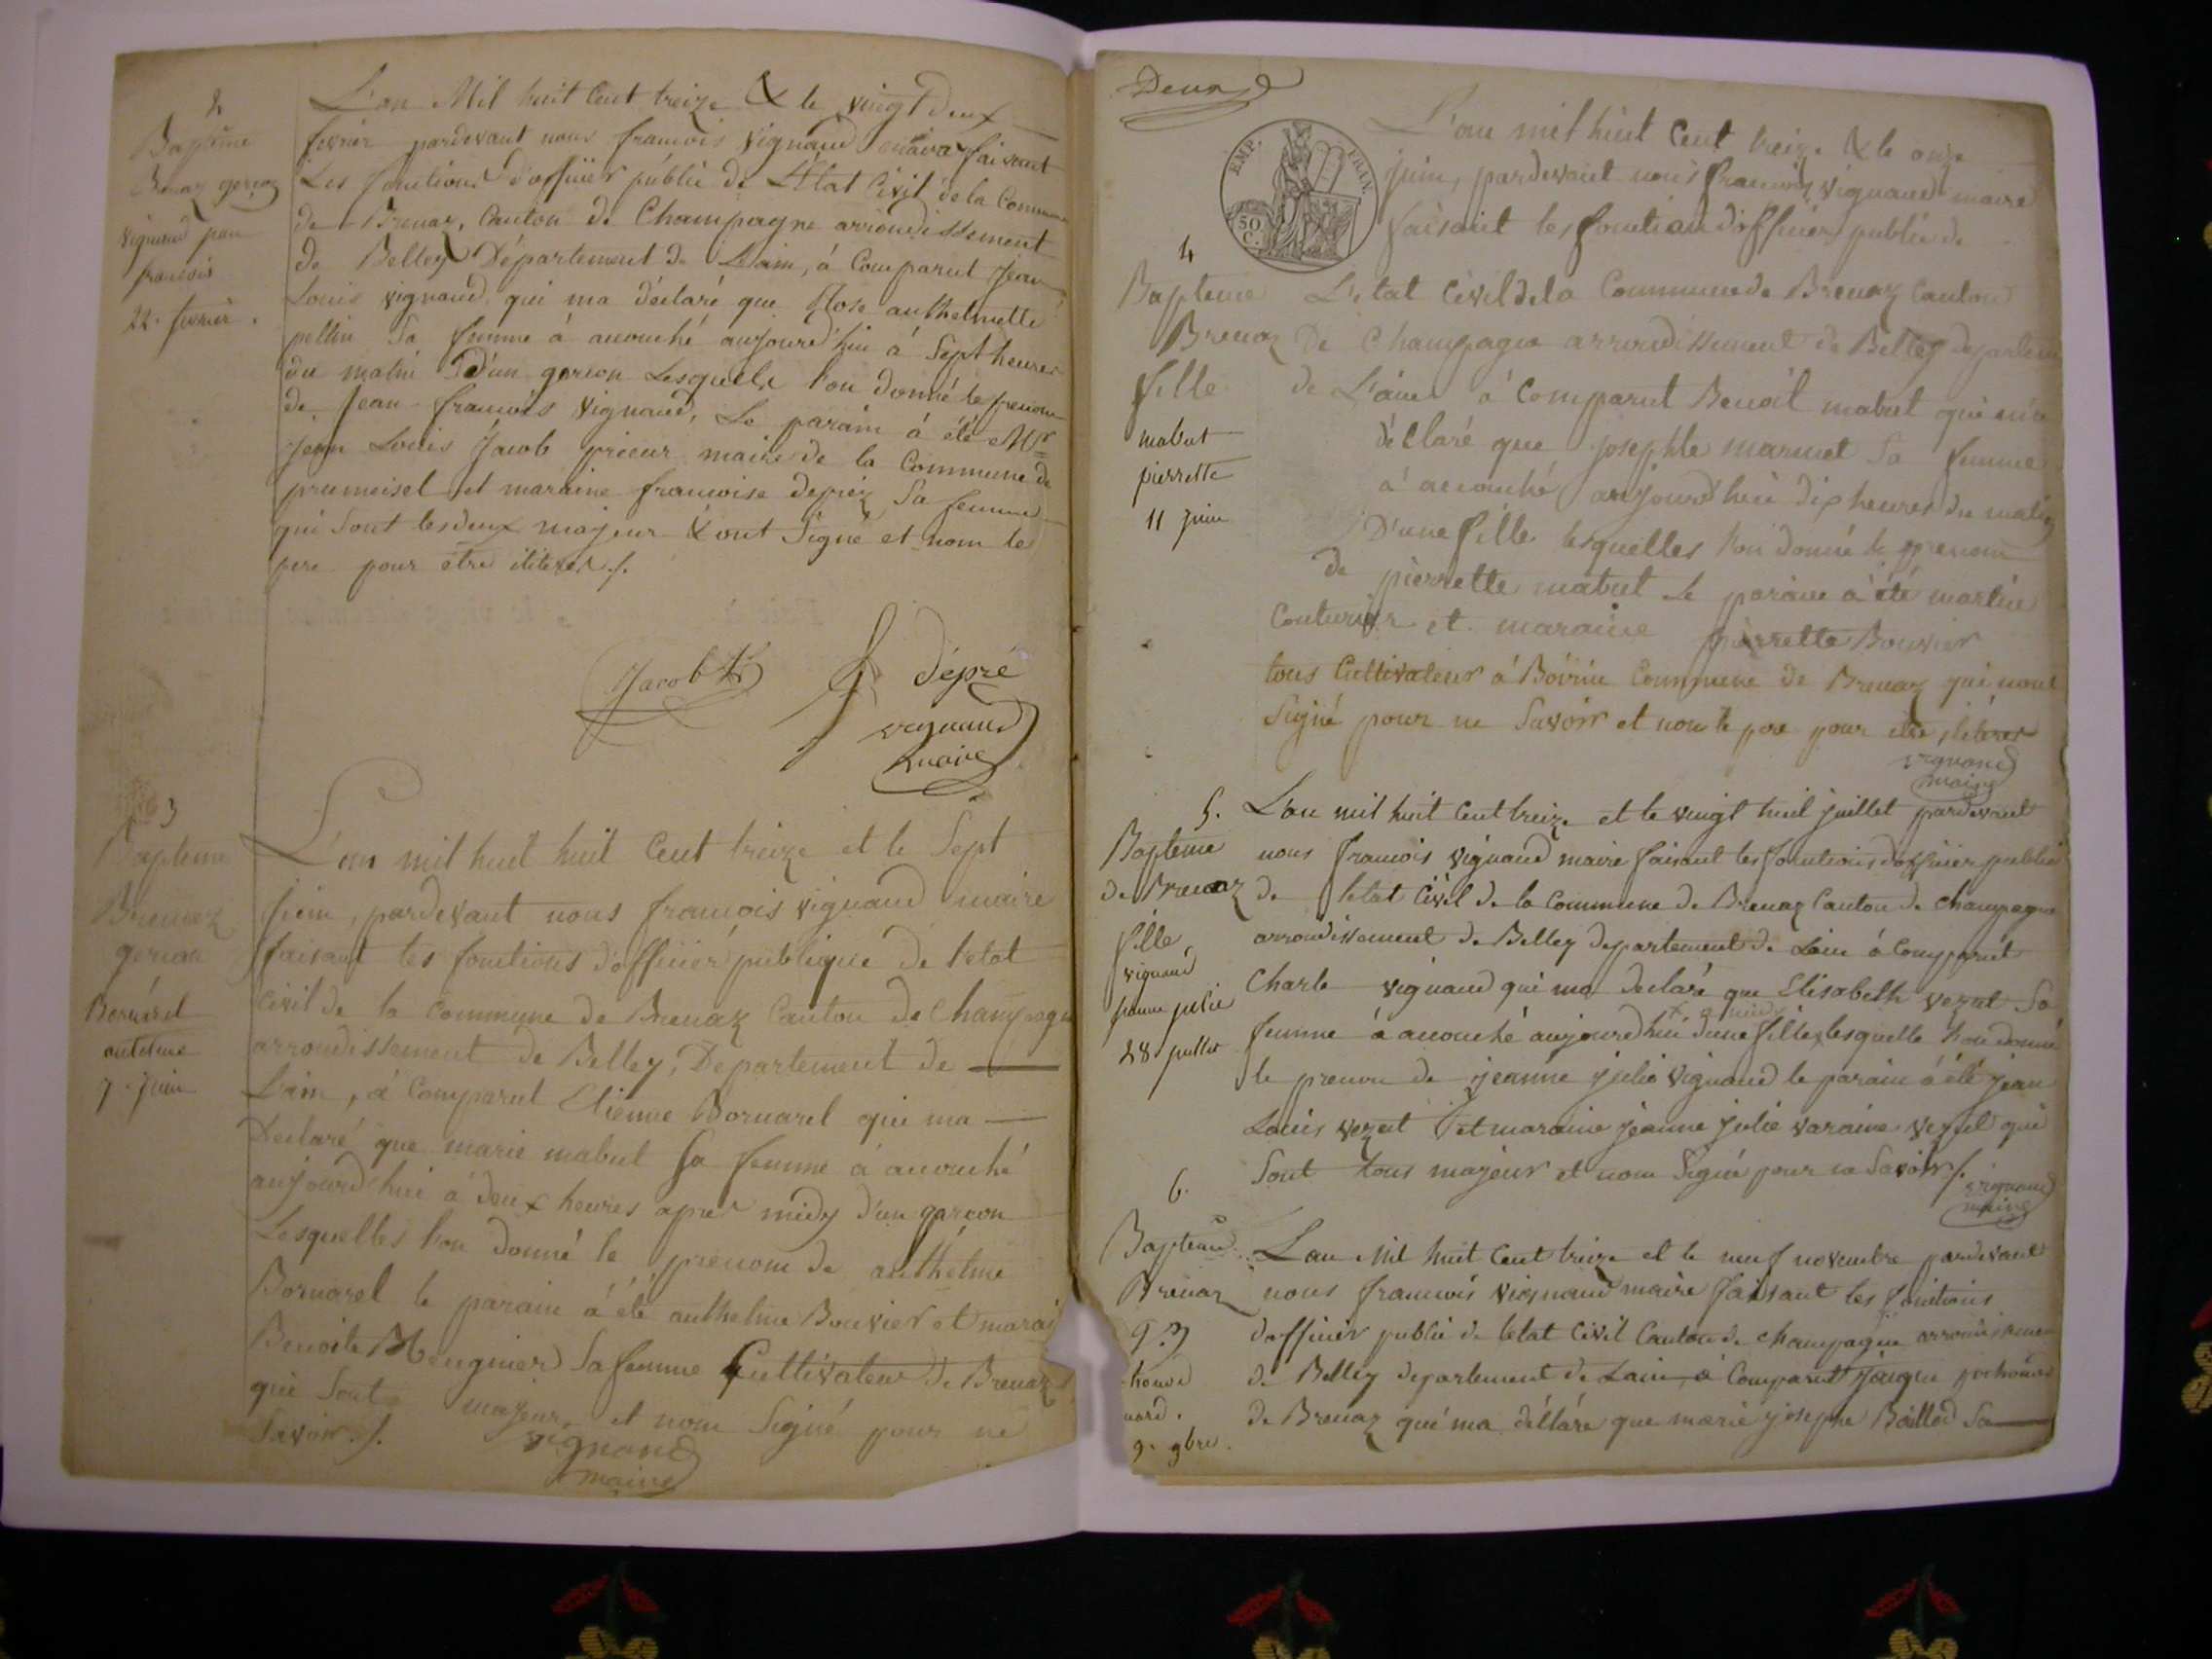 2
Baptême
Brenaz garçon
vignaud jean
francois
22. fevrier.
L'an Mil huit Cent treize & le vingt deux
fevrier pardevant nous francois vignaud maire faisant
Les fonctions d'officier public de L'Etat Civil de la Commune
de Brenaz, Canton de Champagne arrondissement
de Belley Département de L'ain, à Comparut Jean
Louis vignaud qui ma déclaré que Rose anthelmette
pellin Sa femme à acouché aujourd'hui à Sept heures
du matin d'un garcon Lesquelle l'on donné le prenom
de Jean francois vignaud, Le parain à été Mr
Jean Louis Jacob prieur maire de la Commune de
premeisel et maraine francoise depréz Sa femme
qui Sont les deux majeur & ont Signé et nom le
pere pour être
Jacob
dépré
vignaud
maire
3
Bapteme
Brenaz
gercon
Bornarel
antelme
7. juin
L'an mil huit huit Cent treize et le Sept
juin, pardevant nous francois vignaud maire
faisant les fonctions d'officier publique de l'etat
Civil de la Commune de Brenaz Canton de Champagne
arrondissement de Belley, Departement de
Lain, à Comparut Etienne Bornarel qui ma
Declaré que marie mabut Sa femme à acouché
aujourd'hui à deux heures apres midy d'un garcon
Lesquelles l'on donné le prenom de anthelme
Bornarel le parain à été anthelme Bouvier et marai
Benoite Meugnier Sa femme Cultivateur de Brenaz
qui Sont majeur et nom Signé pour ne
Savoir./.
vignaud
maire
Deux
EMP. FRAN.
50
C.
4
Bapteme
Brenaz
fille
mabut
pierrette
11 juin
L'an mil huit Cent treize & le onze
juin, pardevant nous francois vignaud maire
faisant les fonction d'officier public de
L'etat Civil de la Commune de Brenaz Canton
De Champagne arrondissement de Belley departem
de L'ain à Comparut Benoit mabut qui m'a
déClaré que josephte marmet Sa femme
à acouché aujourd'hui dix heures du matin
D'une fille lesquelles l'on donné le prenom
de pierrette mabut Le paraine à été martin
Couturier et maraine pierrette Bouvier
tous Cultivateur à Bovinu Commune de Brenaz qui nont
Signé pour ne Savoir et nom le pere pour etre
vignaud
maire
5.
Bapteme
de Brenaz
fille
vignaud
jeanne julie
28 juillet
L'an mil huit Cent treize et le vingt huit juillet pardevant
nous francois vignaud maire faisant les fonctions d'officier public
de letat Civil de la Commune de Brenaz Canton de champagne
arrondissement de Belley departement de Lain à Comparut
Charle vignaud qui ma declaré que Elisabeth vezut Sa
à midy
femme à acouché aujourd'hui dune fille lesquelle l'on donné
le prenom de jeanne julie vignaud le parain à été jean
Louis vezut et maraine jeanne julie varaine vezut qui
Sont tous majeur et nom Signé pour ne Savoir./.
vignaud
maire
6.
Bapteme
Brenaz
houd
nard.
9. 9bre.
Lan Mil huit Cent treize et le neuf novembre pardevant
nous francois vignaud maire faisant les fonctions
dofficier public de letat Civil Canton de champagne arrondissemen
de Belley departement de Lain, à Comparut Jacque pochoud
de Brenaz qui ma déClaré que marie josephe Baillod Sa